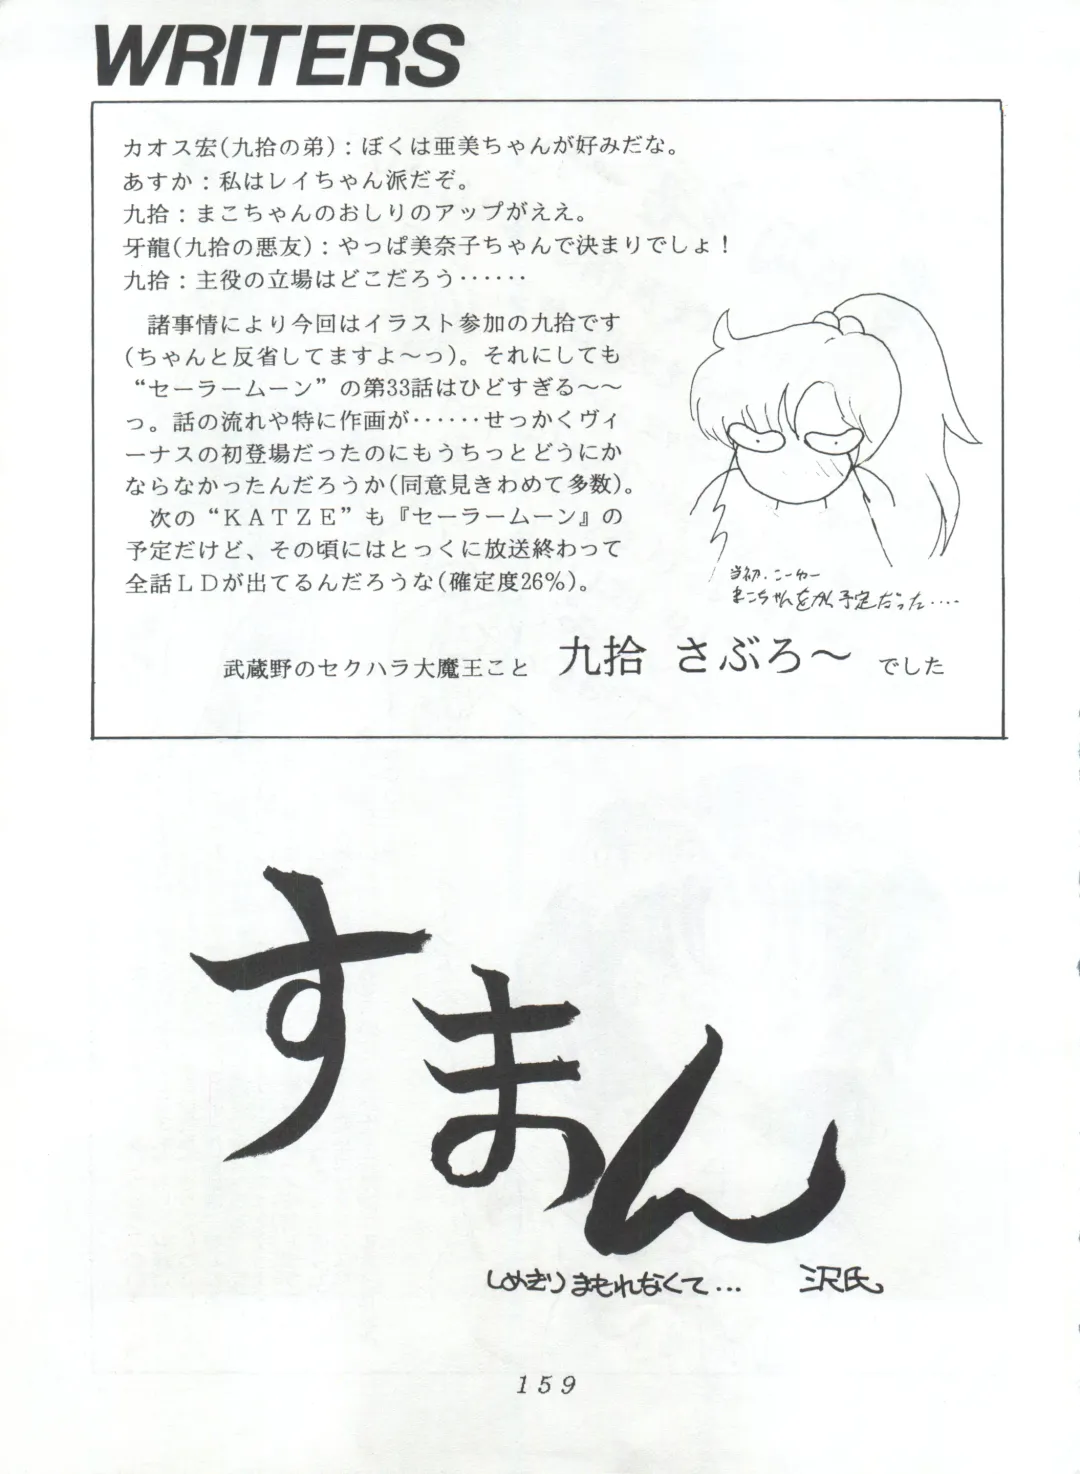 WRITERS
カオス宏(九拾の弟)：ぼくは亜美ちゃんが好みだな。
あすか：私はレイちゃん派だぞ。
九拾：まこちゃんのおしりのアップがええ。
牙龍(九拾の悪友)：やっぱ美奈子ちゃんで決まりでしょ！
九拾：主役の立場はどこだろう‥‥‥
諸事情により今回はイラスト参加の九拾です
(ちゃんと反省してますよ～っ)。それにしても
“セーラームーン”の第33話はひどすぎる～～
っ。話の流れや特に作画が‥‥‥せっかくヴィ
ーナスの初登場だったのにもうちっとどうにか
ならなかったんだろうか(同意見きわめて多数)。
次の“ＫＡＴＺＥ”も『セーラームーン』の
予定だけど、その頃にはとっくに放送終わって
全話ＬＤが出てるんだろうな(確定度26%)。
当初、こーゆー
まこちゃんをかく予定だった‥‥
武蔵野のセクハラ大魔王こと 九拾 さぶろ～ でした
すまん
しめきりまもれなくて… 沢氏。
159